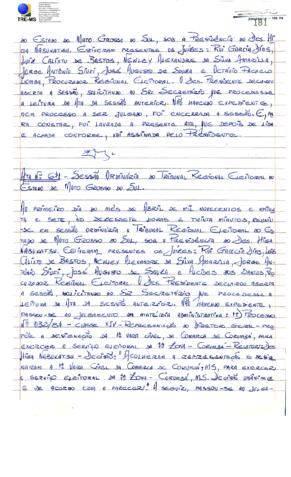 TRE-MS
181
DO ESTADO DE MATO GROSSO DO SUL, SOB A PRESIDÊNCIA DO DES. HI
GA NABUKATSU. ESTIVERAM PRESENTES OS JUÍZES: RUI GARCIA DIAS,
LUIZ CALIXTO DE BASTOS, NEWLEY ALEXANDRE DA SILVA AMARILLA,
JORGE ANTÔNIO SIUFI, JOSÉ AUGUSTO DE SOUZA E
PROCURADOR REGIONAL ELEITORAL. O DES. PRESIDENTE DECLAROU
ABERTA A SESSÃO, SOLICITANDO AO SR. SECRETÁRIO QUE PROCEDESSE
A LEITURA DA ATA DA SESSÃO ANTERIOR. NÃO HAVENDO EXPEDIENTES,
NEM PROCESSO A SER JULGADO, FOI ENCERRADA A SESSÃO. E, PA
RA CONSTAR, FOI LAVRADA A PRESENTE ATA, QUE DEPOIS DE LIDA
E ACHADA CONFORME, FOI ASSINADA PELO PRESIDENTE.
ATA Nº - SESSÃO ORDINÁRIA DO TRIBUNAL REGIONAL ELEITORAL DO
ESTADO DE MATO GROSSO DO SUL.
AO PRIMEIRO DIA DO MÊS DE ABRIL DE MIL NOVECENTOS E OITEN
TA E SETE, ÀS DEZESSETE HORAS E TRINTA MINUTOS, REUNIU-
SE EM SESSÃO ORDINÁRIA O TRIBUNAL REGIONAL ELEITORAL DO ES
TADO DE MATO GROSSO DO SUL, SOB A PRESIDÊNCIA DO DES. HIGA
NABUKATSU. ESTIVERAM PRESENTES OS JUÍZES: RUI GARCIA DIAS, LUIZ
CALIXTO DE BASTOS, NEWLEY ALEXANDRE DA SILVA AMARILLA, JORGE AN
TÔNIO SIUFI, JOSÉ AUGUSTO DE SOUZA E ALCIDES DOS SANTOS, PRO
CURADOR REGIONAL ELEITORAL. O DES. PRESIDENTE DECLAROU ABERTA A
SESSÃO, SOLICITANDO AO SR. SECRETÁRIO QUE PROCEDESSE A
LEITURA DA ATA DA SESSÃO ANTERIOR. NÃO HAVENDO EXPEDIENTE,
PASSOU-SE AO JULGAMENTO DA MATÉRIA ADMINISTRATIVA: 1º) PROCESSO
Nº 032/87 - CLASSE XIV - REPRESENTAÇÃO DO DIRETOR GERAL - PRO
PÕE A DESIGNAÇÃO DA 1ª VARA CÍVEL DA COMARCA DE CORUMBÁ, PARA
EXERCER O SERVIÇO ELEITORAL DA ZONA - CORUMBÁ - RELATOR: DES.
HIGA NABUKATSU - DECISÃO: "ACOLHERAM A REPRESENTAÇÃO E DESIG
NARAM A 1ª VARA CÍVEL DA COMARCA DE CORUMBÁ/MS, PARA EXERCER
O SERVIÇO ELEITORAL DA ZONA - CORUMBÁ, MS. DECISÃO UNÂNIME
E DE ACORDO COM O PARECER." A SEGUIR, PASSOU-SE AO JULGA-